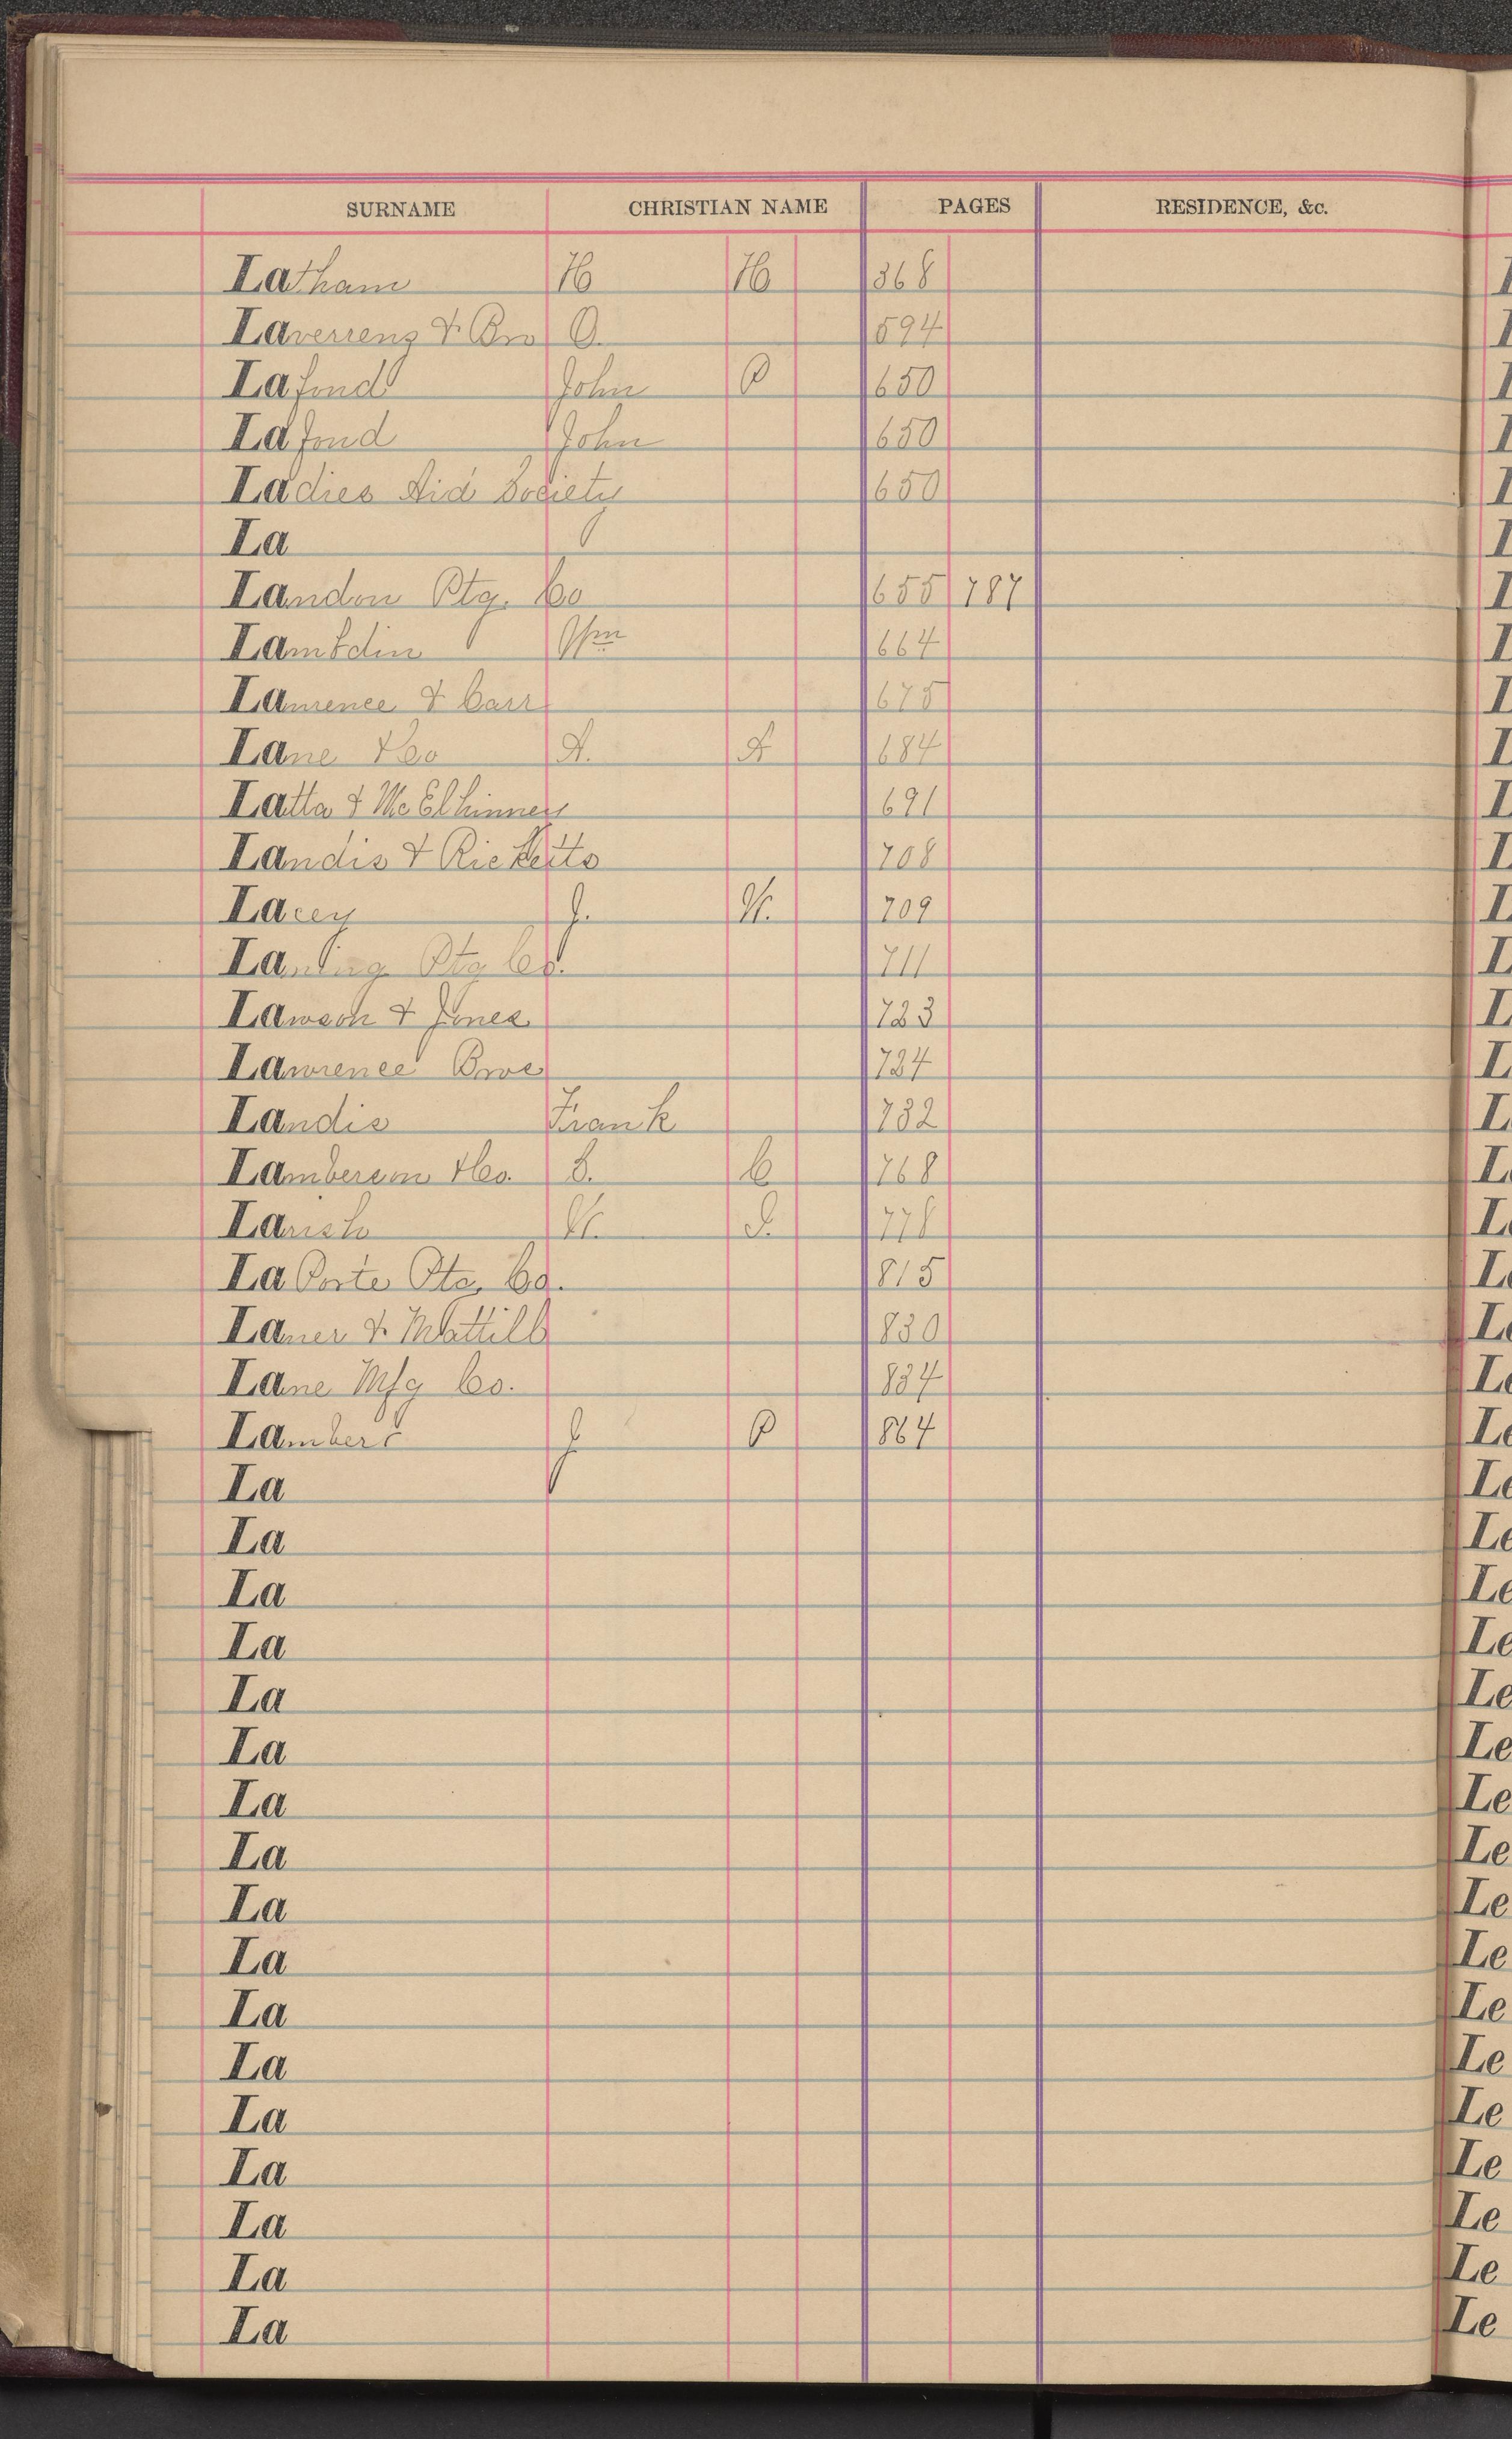 SURNAME CHRISTIAN NAME PAGES RESIDENCE, &c.
Latham H H 368
Laverrenz & Bro O. 594
Lafond John P 650
Lafond John 650
Ladies Aid Society 650
La
Landon Ptg. Co 655 787
Lambdin Wm 664
Lawrence & Carr 675
Lane & Co A. A 684
Latta & McElhinney 691
Landis & Ricketts 708
Lacey J. W. 709
Laning Ptg Co. 711
Lawson & Jones 723
Lawrence Bros 724
Landis Frank 732
Lamberson & Co. C 768
Larish W. S. 778
LaPorte Ptg. Co. 815
Lauer & Mattill 830
Lane Mfg Co. 834
Lambert J P 864
La
La
La
La
La
La
La
La
La
La
La
La
La
La
La
La
La
Le
Le
Le
Le
Le
Le
Le
Le
Le
Le
Le
Le
Le
Le
Le
Le
Le